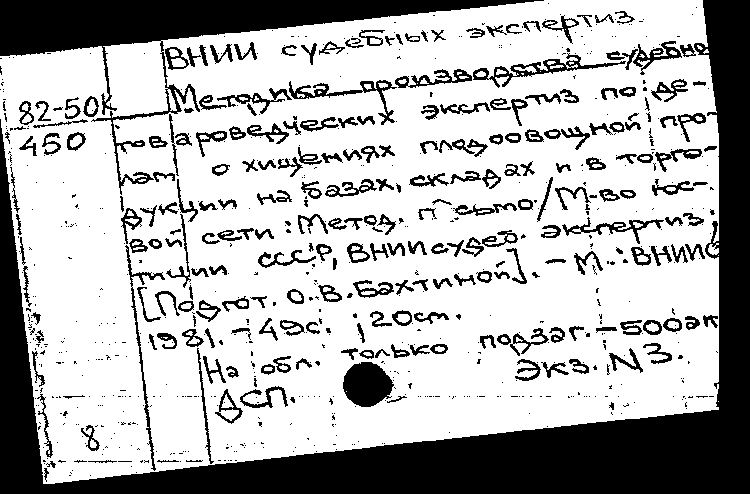 ВНИИ судебных экспертиз
82-50К Методика производства судебно
450 товароведческих экспертиз по де-
лам о хищениях плодоовощной про-
дукции на базах, складах и в торго-
вой сети : Метод. письмо / М-во юс-
тиции СССР, ВНИИ судеб. экспертиз ;
[Подгот. О.В. Бахтиной]. – М. : ВНИИС
1981. – 49с. ; 20см.
На обл. только подзаг. – 500эк
ДСП. Экз. N3.
8